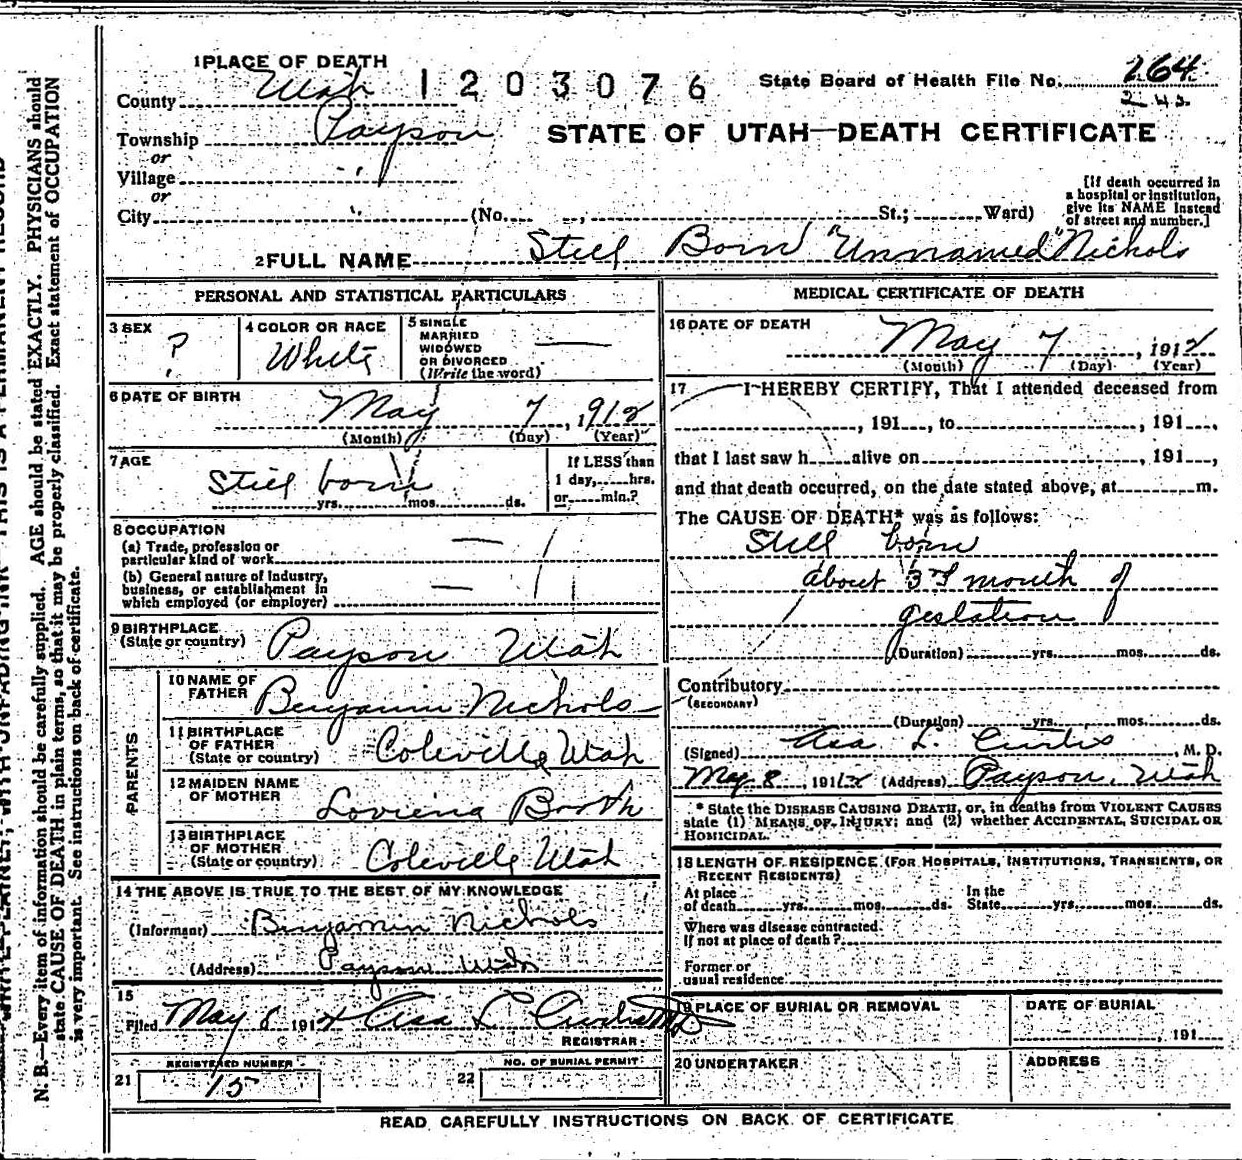 N. B.—Every item of information should be carefully supplied. AGE should be stated EXACTLY. PHYSICIANS should
state CAUSE OF DEATH in plain terms, so that it may be properly classified. Exact statement of OCCUPATION
is very important. See instructions on back of certificate.
1 PLACE OF DEATH
1203076
State Board of Health File No. 264
County Utah
Township Payson
STATE OF UTAH—DEATH CERTIFICATE
or
Village
or
City (No. , St.; Ward)
[If death occurred in
a hospital or institution,
give its NAME instead
of street and number.]
2 FULL NAME Still Born "Unnamed" Nichols
PERSONAL AND STATISTICAL PARTICULARS
3 SEX ?
4 COLOR OR RACE White
5 SINGLE
MARRIED
WIDOWED
OR DIVORCED
(Write the word) —
6 DATE OF BIRTH May 7, 1912
(Month) (Day) (Year)
7 AGE Still born
yrs. mos. ds.
If LESS than
1 day, hrs.
or min.?
8 OCCUPATION
(a) Trade, profession or
particular kind of work —
(b) General nature of industry,
business, or establishment in
which employed (or employer) —
9 BIRTHPLACE
(State or country) Payson Utah
PARENTS
10 NAME OF
FATHER Benjamin Nichols
11 BIRTHPLACE
OF FATHER
(State or country) Coleville Utah
12 MAIDEN NAME
OF MOTHER Loviena Booth
13 BIRTHPLACE
OF MOTHER
(State or country) Coleville Utah
14 THE ABOVE IS TRUE TO THE BEST OF MY KNOWLEDGE
(Informant) Benjamin Nichols
(Address) Payson Utah
15
Filed May 8 191 Asa L Curtis MD
REGISTRAR
REGISTERED NUMBER
21 15
NO. OF BURIAL PERMIT
22
MEDICAL CERTIFICATE OF DEATH
16 DATE OF DEATH
May 7, 1912
(Month) (Day) (Year)
17 I HEREBY CERTIFY, That I attended deceased from
, 191 , to , 191 ,
that I last saw h alive on , 191 ,
and that death occurred, on the date stated above, at m.
The CAUSE OF DEATH* was as follows:
Still born
about 3rd month of
gestation
(Duration) yrs. mos. ds.
Contributory
(SECONDARY)
(Duration) yrs. mos. ds.
(Signed) Asa L. Curtis, M. D.
May 8, 1912 (Address) Payson, Utah
* State the DISEASE CAUSING DEATH, or, in deaths from VIOLENT CAUSES
state (1) MEANS OF INJURY; and (2) whether ACCIDENTAL, SUICIDAL OR
HOMICIDAL.
18 LENGTH OF RESIDENCE (FOR HOSPITALS, INSTITUTIONS, TRANSIENTS, OR
RECENT RESIDENTS)
At place
of death yrs. mos. ds.
In the
State yrs. mos. ds.
Where was disease contracted,
If not at place of death?
Former or
usual residence
PLACE OF BURIAL OR REMOVAL
DATE OF BURIAL
, 191
20 UNDERTAKER
ADDRESS
READ CAREFULLY INSTRUCTIONS ON BACK OF CERTIFICATE